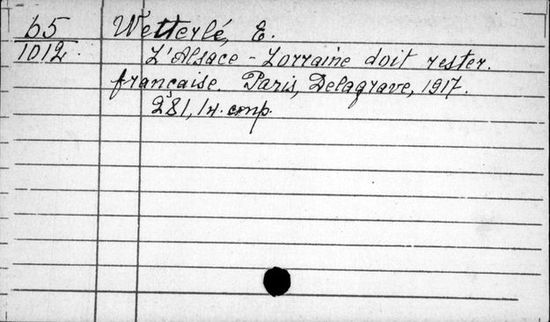 65 Wetterlé, E.
1012. L'Alsace-Lorraine doit rester
française. Paris, Delagrave, 1917.
281, 1н. стр.